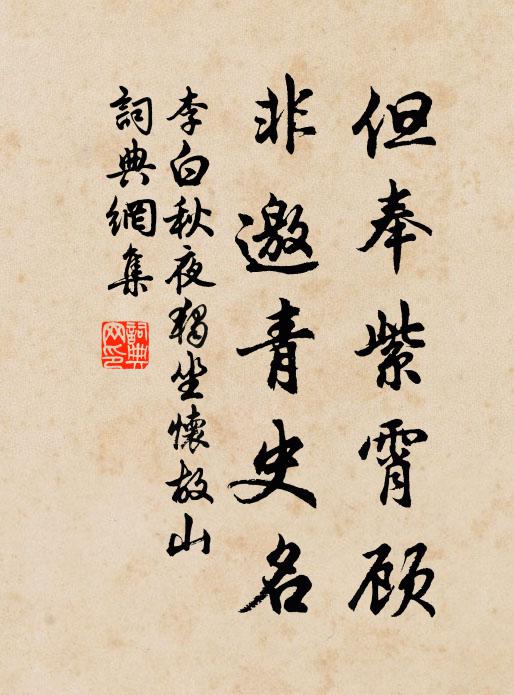 但奉紫霄顾
非邀青史名
李白秋夜獨坐懷故山
詞典網集
詞典网印